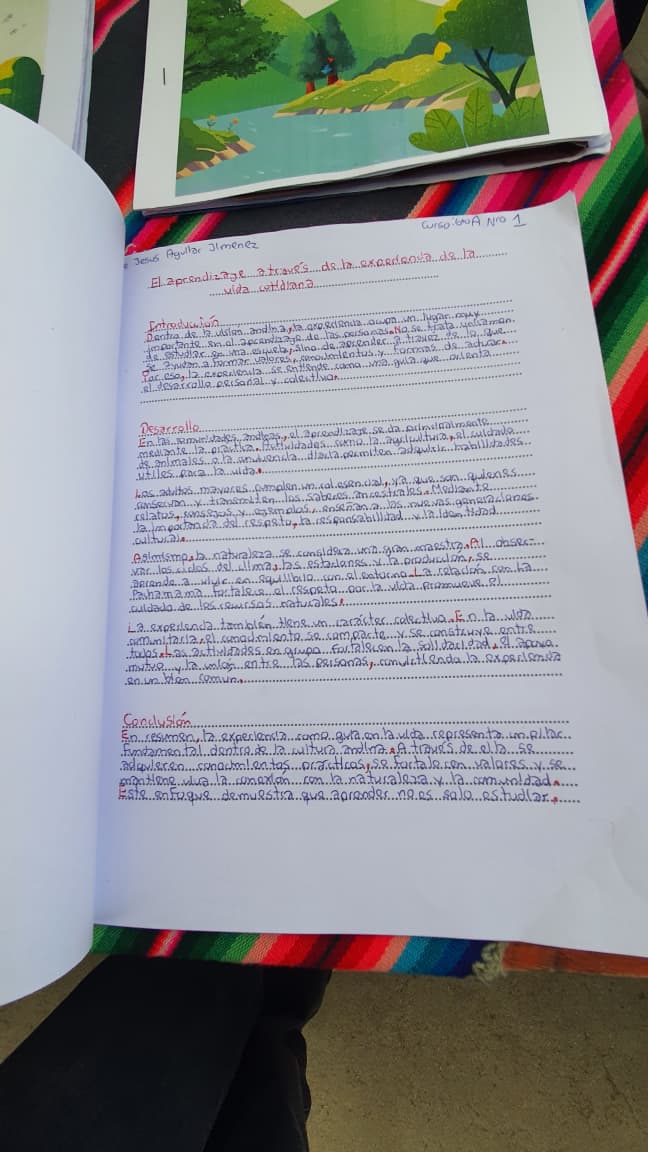 Curso: 6to A Nro 1
Jesus Aguilar Jimenez
El aprendizaje a través de la experiencia de la
vida cotidiana
Introducción
Dentro de la visión andina, la experiencia ocupa un lugar muy
importante en el aprendizaje de las personas. No se trata
de estudiar en una escuela, sino de aprender a traves de lo que
se ayudan a formar valores, conocimientos y formas de actuar.
Por eso, la experiencia se entiende como una guía que orienta
el desarrollo personal y colectivo.
Desarrollo
En las comunidades andinas, el aprendizaje se da principalmente
mediante la práctica. Actividades como la agricultura, el cuidado
de animales o la convivencia diaria permiten adquirir habilidades
utiles para la vida.
Los adultos mayores cumplen un rol esencial, ya que son quienes
conservan y transmiten los saberes ancestrales. Mediante
relatos, consejos y ejemplos, enseñan a las nuevas generaciones
la importancia del respeto, la responsabilidad y la identidad
cultural.
Asimismo, la naturaleza se considera una gran maestra. Al obser-
var los ciclos del clima, las estaciones y la produccion, se
aprende a vivir en equilibrio con el entorno. La relación con la
Pachamama fortalece el respeto por la vida promueve el
cuidado de los recursos naturales.
La experiencia también tiene un carácter colectivo. En la vida
comunitaria, el conocimiento se comparte y se construye entre
todos. Las actividades en grupo fortalecen la solidaridad, el apoyo
mutuo y la union entre las personas, convirtiendo la experiencia
en un bien comun.
Conclusión
En resumen, la experiencia como guía en la vida representa un pilar
fundamental dentro de la cultura andina. A través de ella se
adquieren conocimientos prácticos, se fortalecen valores y se
mantiene viva la conexión con la naturaleza y la comunidad.
Este enfoque demuestra que aprender no es solo estudiar.